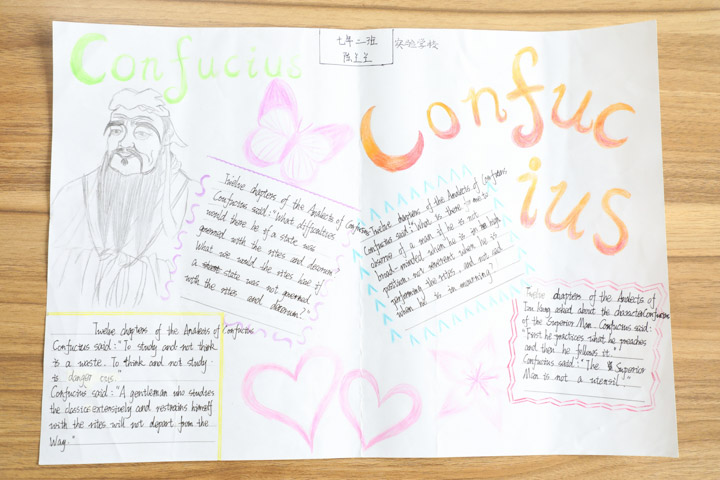 Confucius
七年二班
陈兰兰
实验学校
Confuc
ius
Twelve chapters of the Analects of Confucius
Confucius said: "What difficulties
would there be if a state was
governed with the rites and decorum?
What we would the rites have if
a state was not governed
with the rites and decorum?"
Twelve chapters of the Analects of Confucius
Confucius said: "What is there to me to
observe of a man if he is not
broad-minded when he is in high
position, not reverent when he is
performing the rites, and not sad
when he is in mourning?
Twelve chapters of the Analects of Confucius
Confucius said: "To study and not think
is a waste. To think and not study
is danger ous."
Confucius said: "A gentleman who studies
the classics extensively and restrains himself
with the rites will not depart from the
Way."
Twelve chapters of the Analects of
Confucius
Kung asked about the character
of the Superior Man. Confucius said:
"First he practices what he preaches
and then he follows it."
Confucius said: "The Superior
Man is not a utensil."